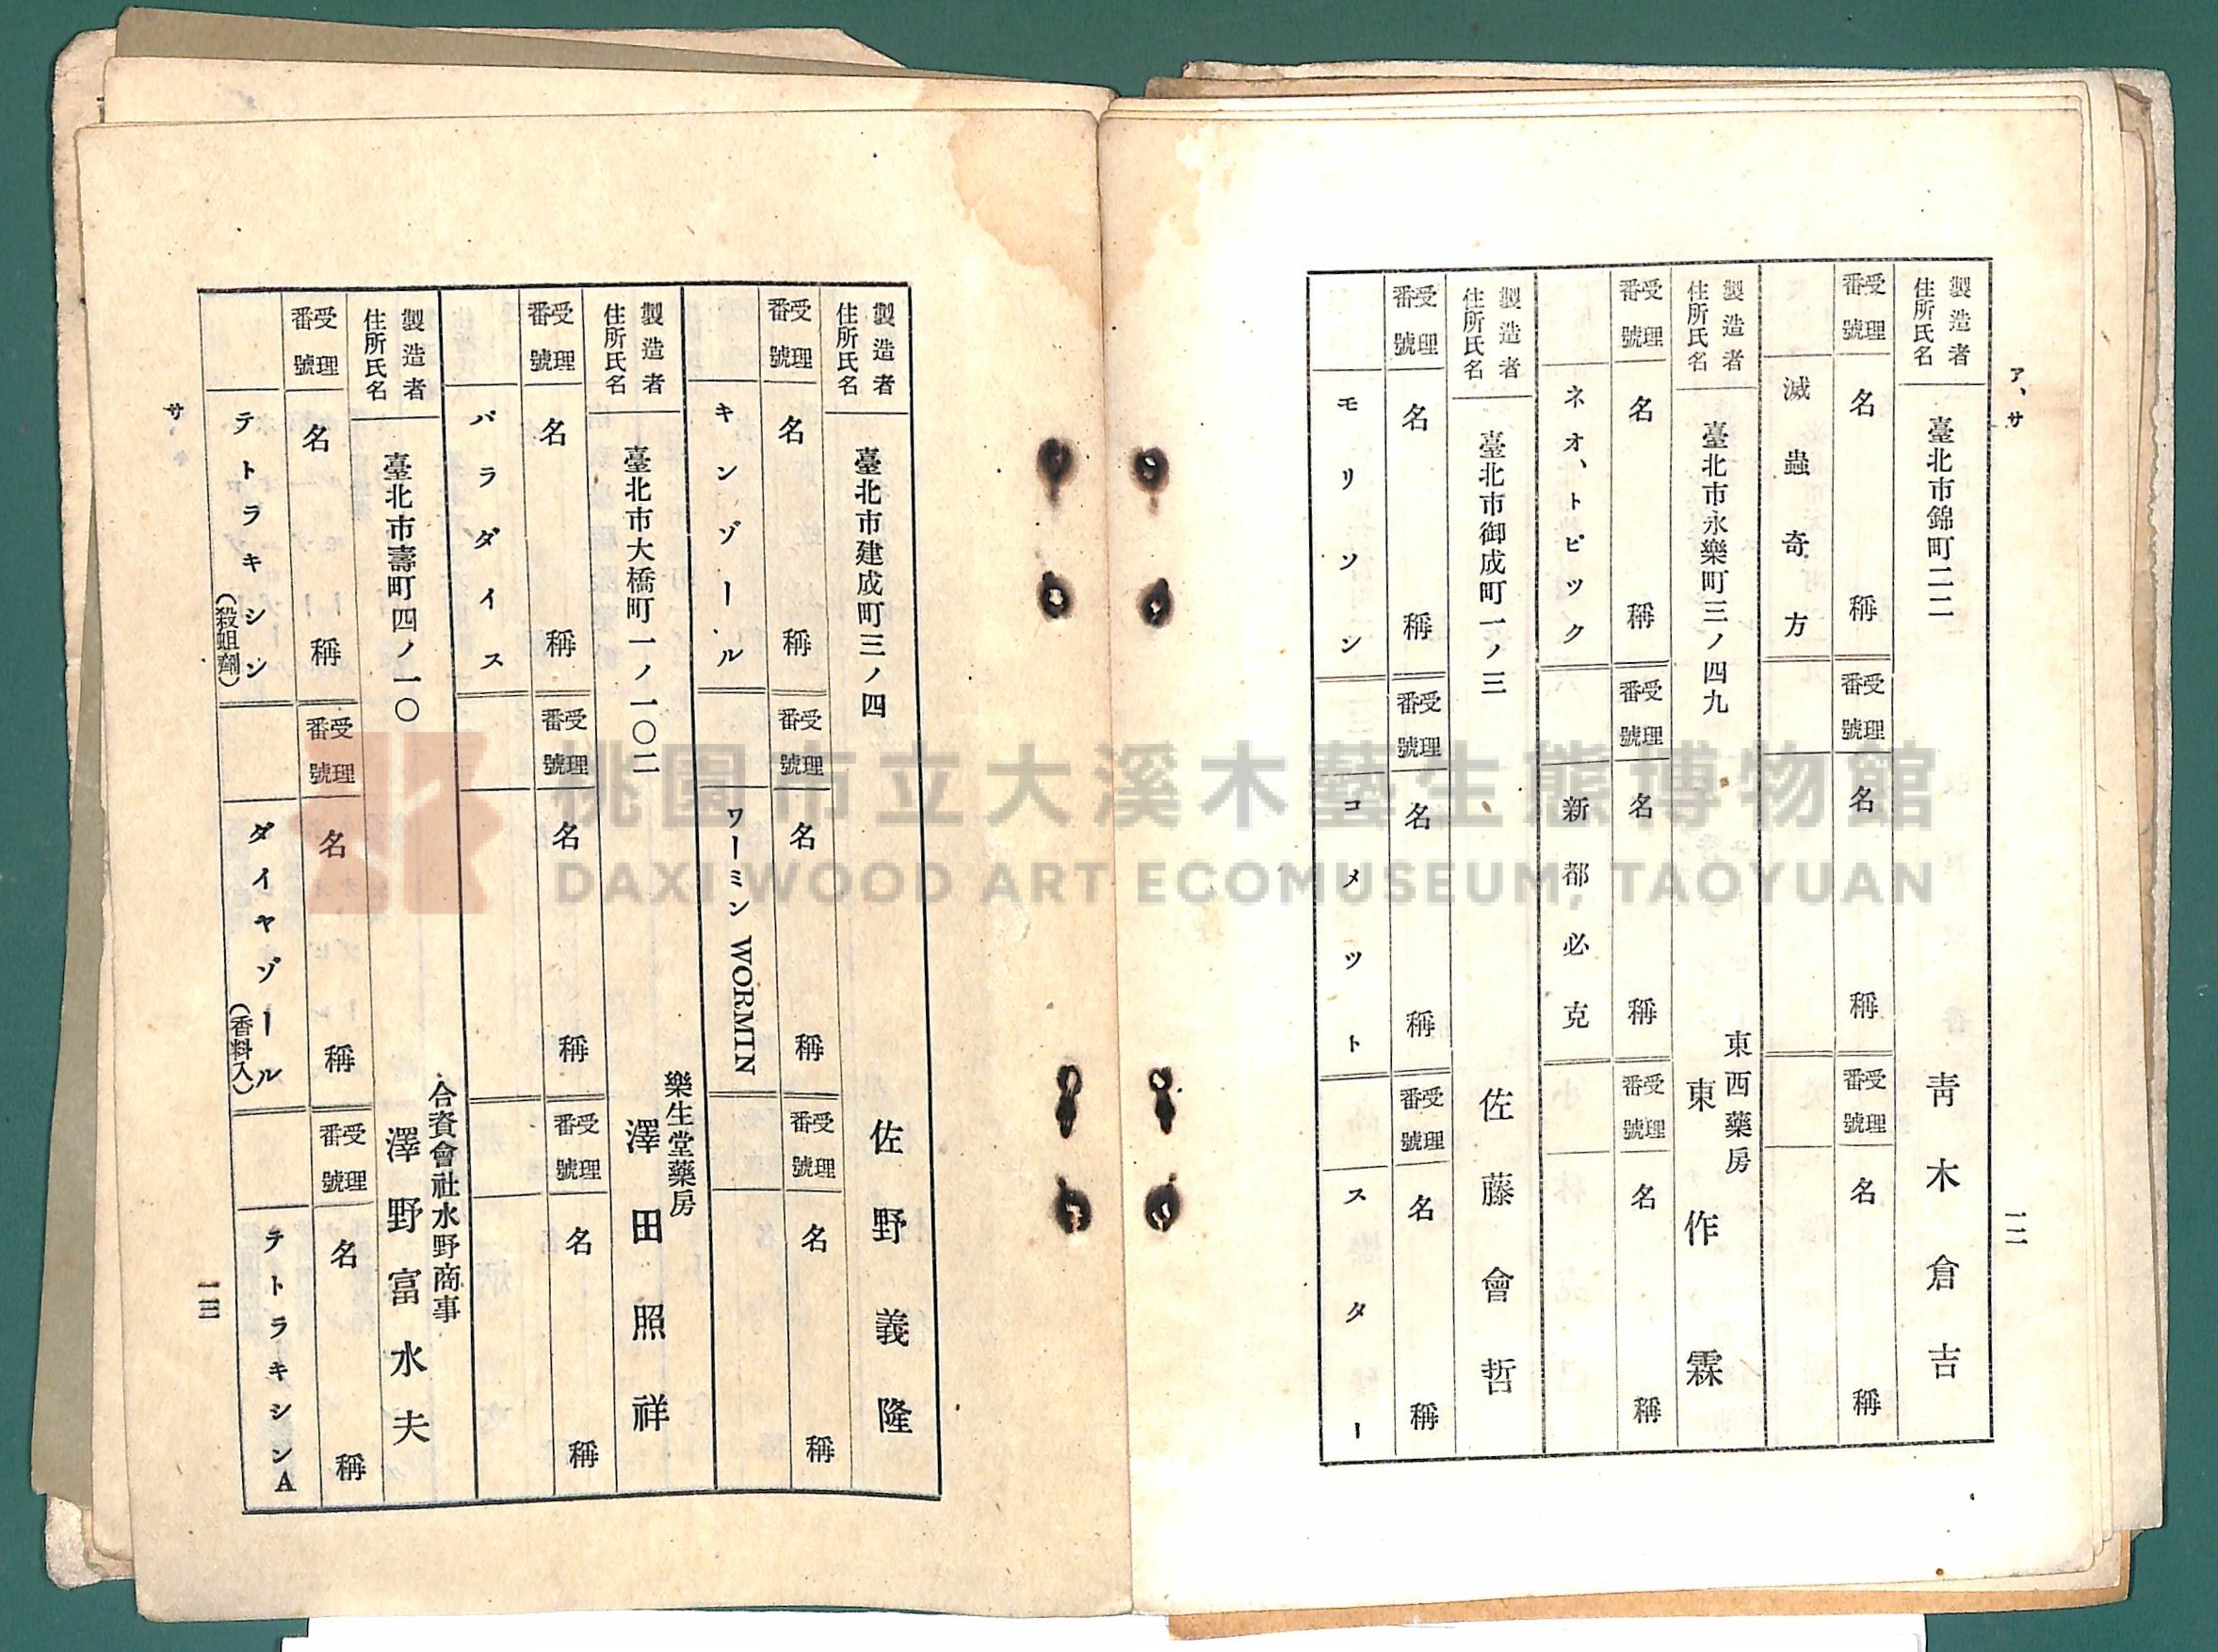 ア、サ
一二
製造者
住所氏名
臺北市錦町二二
青木倉吉
受理番號
名稱
受理番號
名稱
受理番號
名稱
滅蟲奇方
製造者
住所氏名
臺北市永樂町三ノ四九
東西藥房
東作霖
受理番號
名稱
受理番號
名稱
受理番號
名稱
ネオ、トピック
新都必克
製造者
住所氏名
臺北市御成町一ノ三
佐藤會哲
受理番號
名稱
受理番號
名稱
受理番號
名稱
モリソン
コメット
スター
製造者
住所氏名
臺北市建成町三ノ四
佐野義隆
受理番號
名稱
受理番號
名稱
受理番號
名稱
キンゾール
ワーミン WORMIN
製造者
住所氏名
臺北市大橋町一ノ一〇二
樂生堂藥房
澤田照祥
受理番號
名稱
受理番號
名稱
受理番號
名稱
パラダイス
製造者
住所氏名
臺北市壽町四ノ一〇
合資會社水野商事
澤野富水夫
受理番號
名稱
受理番號
名稱
受理番號
名稱
テトラキシン
(殺蛆劑)
ダイヤゾール
(香料入)
テトラキシンA
サ
一三
桃園市立大溪木藝生態博物館
DAXI WOOD ART ECOMUSEUM, TAOYUAN